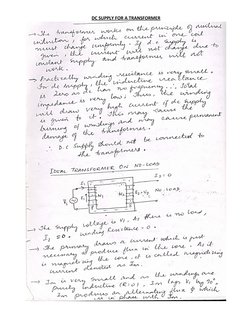 DC SUPPLY FOR A TRANSFORMER
→ The transformer works on the principle of mutual
induction, for which current in one coil
must change uniformly. If d.c. supply is
given, the current will not change due to
constant supply and transformer will not
work.
→ Practically winding resistance is very small.
In dc supply, the inductive reactance
is zero as dc has no frequency. ∴ Total
impedance is very low. Thus, the winding
will draw very high current if dc supply
is given to it. This may cause the
burning of windings and may cause permanent
damage of the transformer.
∴ D.C supply should not be connected to
the transformers.
IDEAL TRANSFORMER ON NO-LOAD
I2 = 0
N1 N2
NO-LOAD
→ The supply voltage is V1. As there is no load,
→ The primary draws a current which is just
necessary to produce flux in the core. As it
is magnetising the core, it is called magnetising
current denoted as Im.
→ Im is very small and as the windings are
purely inductive (R=0), Im lags V1 by 90°.
Im produces an alternating flux φ which
is in phase with Im.